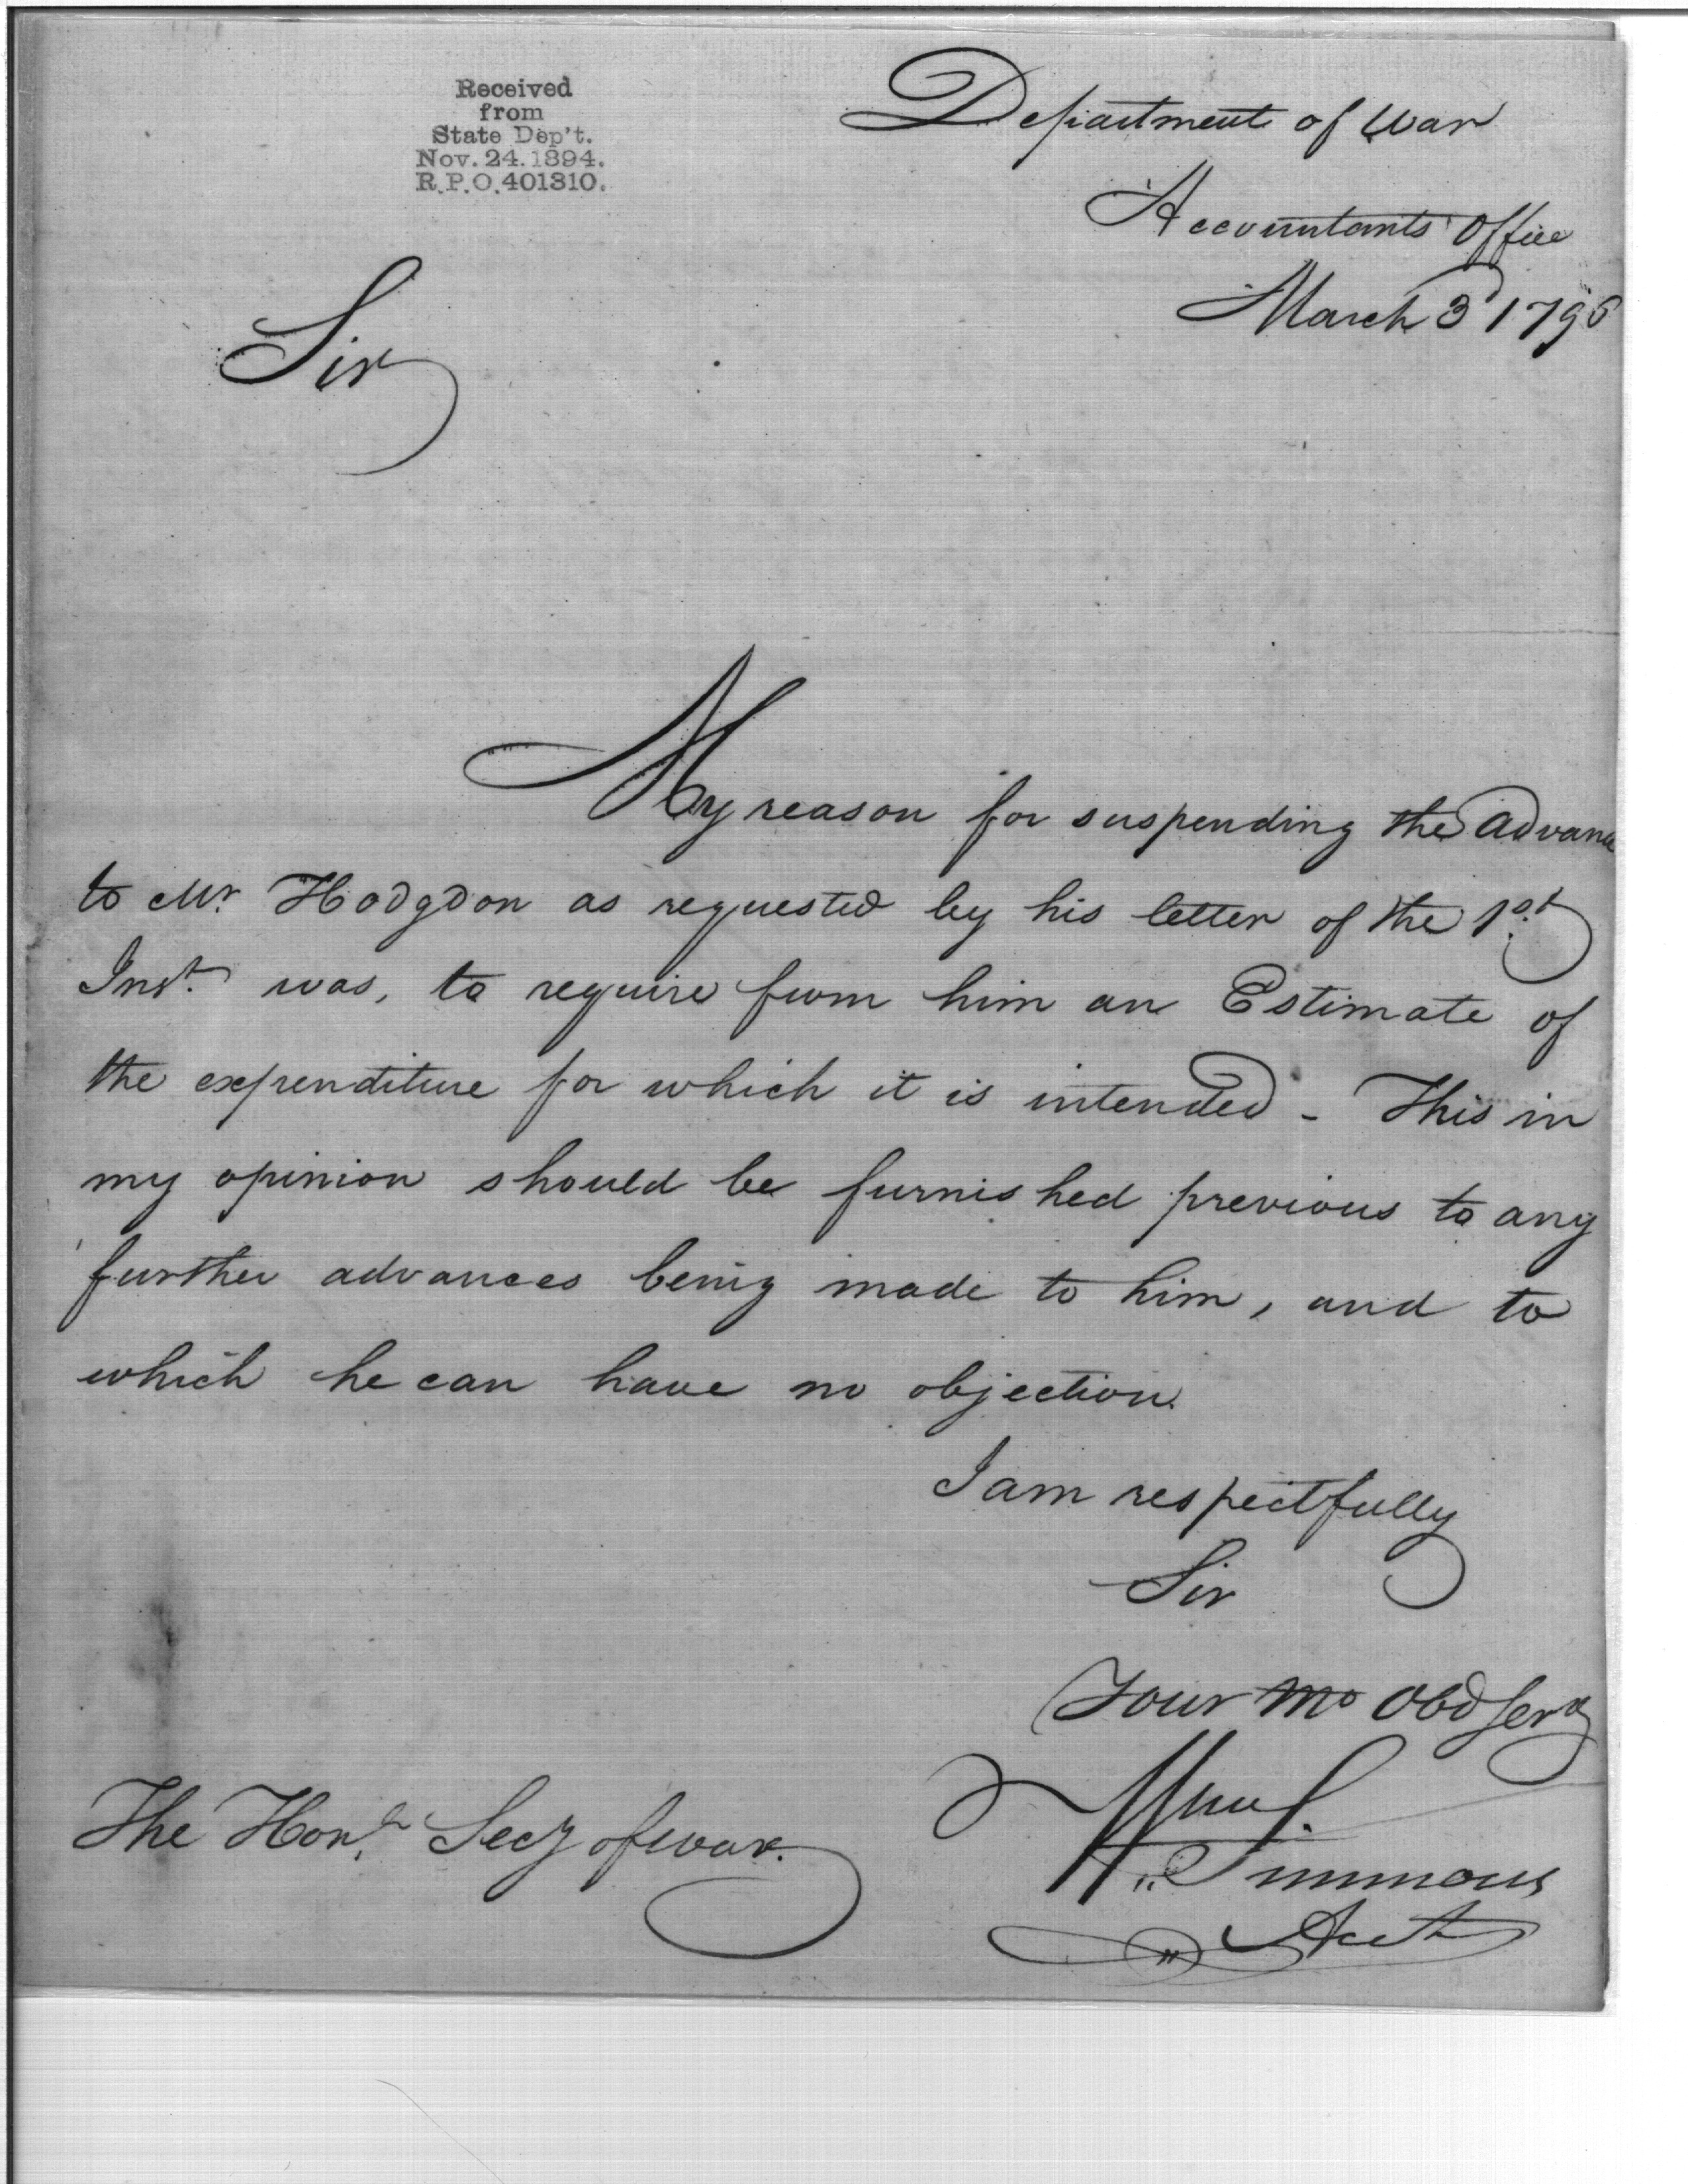 Received
from
State Dep't.
Nov. 24. 1894.
R.P.O. 401310.
Department of War
Accountants Office
March 3d 1796
Sir
My reason for suspending the advance
to Mr. Hodgdon as requested by his letter of the 1st.
Inst. was, to require from him an Estimate of
the expenditure for which it is intended - This in
my opinion should be furnished previous to any
further advances being made to him, and to
which he can have no objection.
I am respectfully
Sir
Your Mo Obd Serv
The Honl. Secy of war.
Simmons
Acct